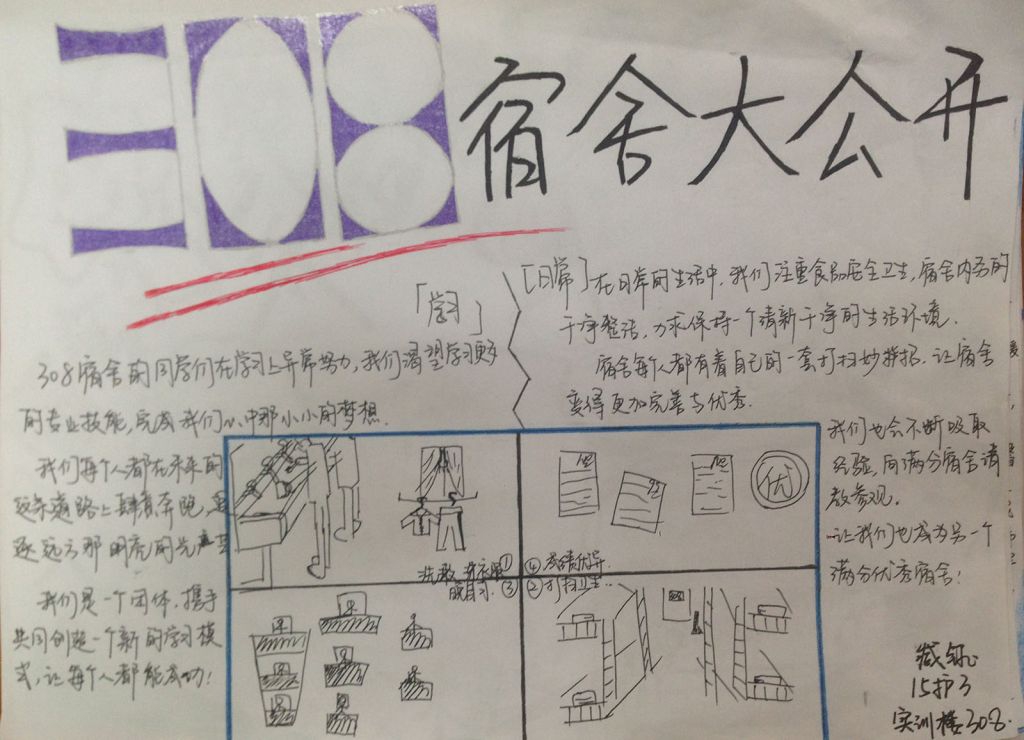 308宿舍大公开
「学习」
308宿舍的同学们在学习上异常努力,我们渴望学习更多
的专业技能,完成我们心中那小小的梦想.
我们每个人都在未来的
这条道路上肆意奔跑,追
逐远方那
我们是一个团体,携手
共同创造一个新的学习模
式,让每个人都能成功!
[日常]在日常的生活中,我们注重食品安全卫生,宿舍内务的
干净整洁,力求保持一个清新干净的生活环境.
宿舍每个人都有着自己的一套打扫妙招,让宿舍
变得更加完善与优秀.
我们也会不断吸取
经验,向满分宿舍请
教参观.
让我们也成为另一个
满分优秀宿舍!
优
洗漱 ①
晚自习.③
④成绩优异.
②打扫卫生..
15护3
实训楼308.